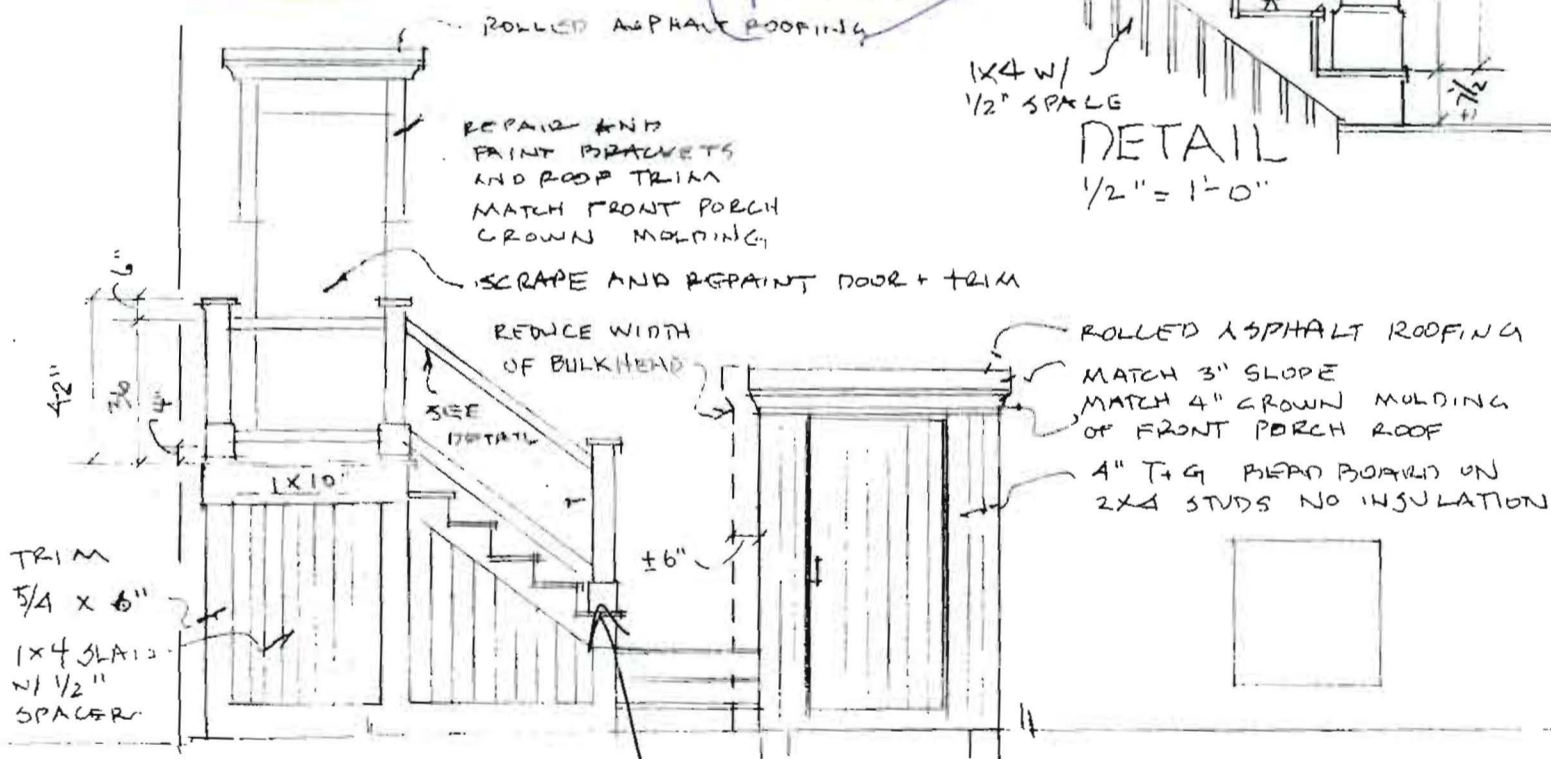 ROLLED ASPHALT ROOFING
1X4 W/
1/2" SPACE
DETAIL
1/2" = 1'-0"
REPAIR AND
PAINT BRACKETS
AND ROOF TRIM
MATCH FRONT PORCH
CROWN MOLDING
SCRAPE AND REPAINT DOOR + TRIM
6"
42"
36
4"
REDUCE WIDTH
OF BULKHEAD
SEE
DETAIL
ROLLED ASPHALT ROOFING
MATCH 3" SLOPE
MATCH 4" CROWN MOLDING
OF FRONT PORCH ROOF
4" T+G BEAD BOARD ON
2X4 STUDS NO INSULATION
1X10
±6"
TRIM
5/4 X 6"
1X4 SLATS
W/ 1/2"
SPACER